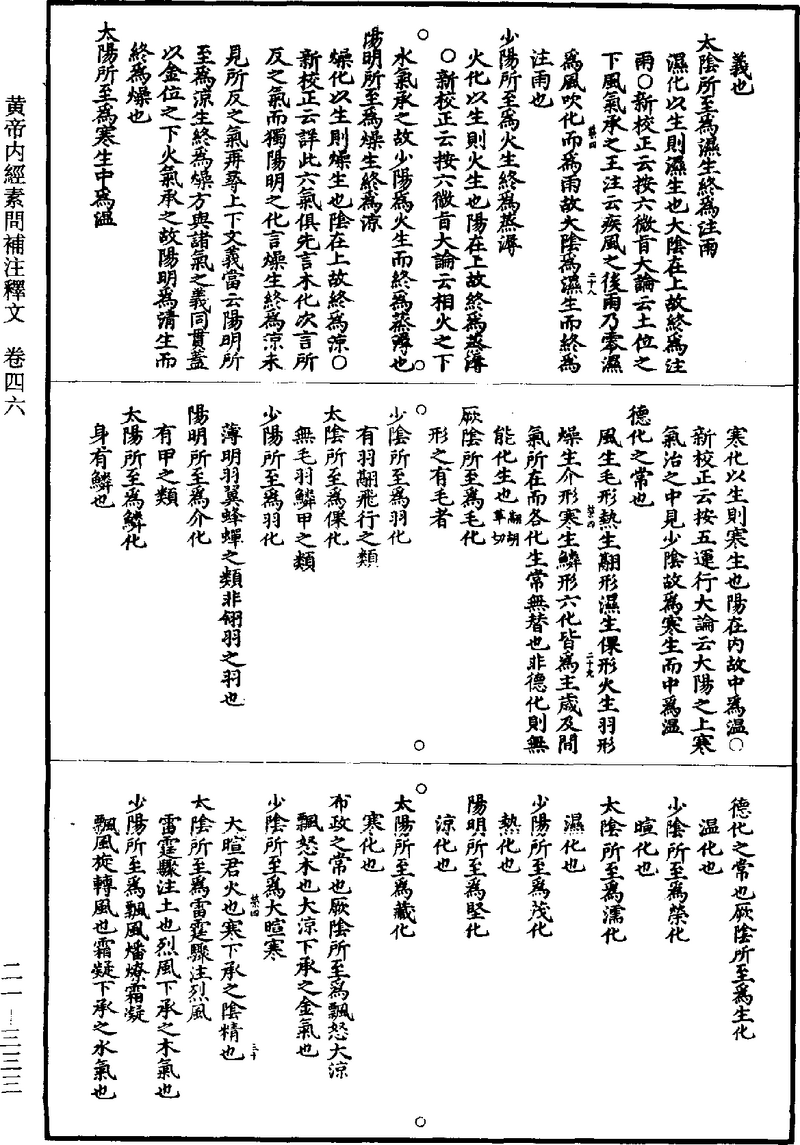 黄帝内經素問補注釋文　卷四六
二一—三三三
義也
太陰所至爲濕生終爲注雨
濕化以生則濕生也太陰在上故終爲注
雨○新校正云按六微旨大論云土位之
下風氣承之王注云疾風之後雨乃零濕
爲風吹化而爲雨故太陰爲濕生而終爲
注雨也
少陽所至爲火生終爲蒸溽
火化以生則火生也陽在上故終爲蒸溽
○新校正云按六微旨大論云相火之下
水氣承之故少陽爲火生而終爲蒸溽也
陽明所至爲燥生終爲涼
燥化以生則燥生也陰在上故終爲涼○
新校正云詳此六氣俱先言本化次言所
反之氣而獨陽明之化言燥生終爲涼未
見所反之氣再尋上下文義當云陽明所
至爲涼生終爲燥方與諸氣之義同貫蓋
以金位之下火氣承之故陽明爲清生而
終爲燥也
太陽所至爲寒生中爲温
寒化以生則寒生也陽在内故中爲温○
新校正云按五運行大論云太陽之上寒
氣治之中見少陰故爲寒生而中爲温
德化之常也
風生毛形熱生翮形濕生倮形火生羽形
燥生介形寒生鱗形六化皆爲主歲及間
氣所在而各化生常無替也非德化則無
能化生也翮胡革切
厥陰所至爲毛化
形之有毛者
少陰所至爲羽化
有羽翮飛行之類
太陰所至爲倮化
無毛羽鱗甲之類
少陽所至爲羽化
薄明羽翼蜂蟬之類非翎羽之羽也
陽明所至爲介化
有甲之類
太陽所至爲鱗化
身有鱗也
德化之常也厥陰所至爲生化
温化也
少陰所至爲榮化
暄化也
太陰所至爲濡化
濕化也
少陽所至爲茂化
熱化也
陽明所至爲堅化
涼化也
太陽所至爲藏化
寒化也
布政之常也厥陰所至爲飄怒大涼
飄怒木也大涼下承之金氣也
少陰所至爲大暄寒
大暄君火也寒下承之陰精也
太陰所至爲雷霆驟注烈風
雷霆驟注土也烈風下承之木氣也
少陽所至爲飄風燔燎霜凝
飄風旋轉風也霜凝下承之水氣也